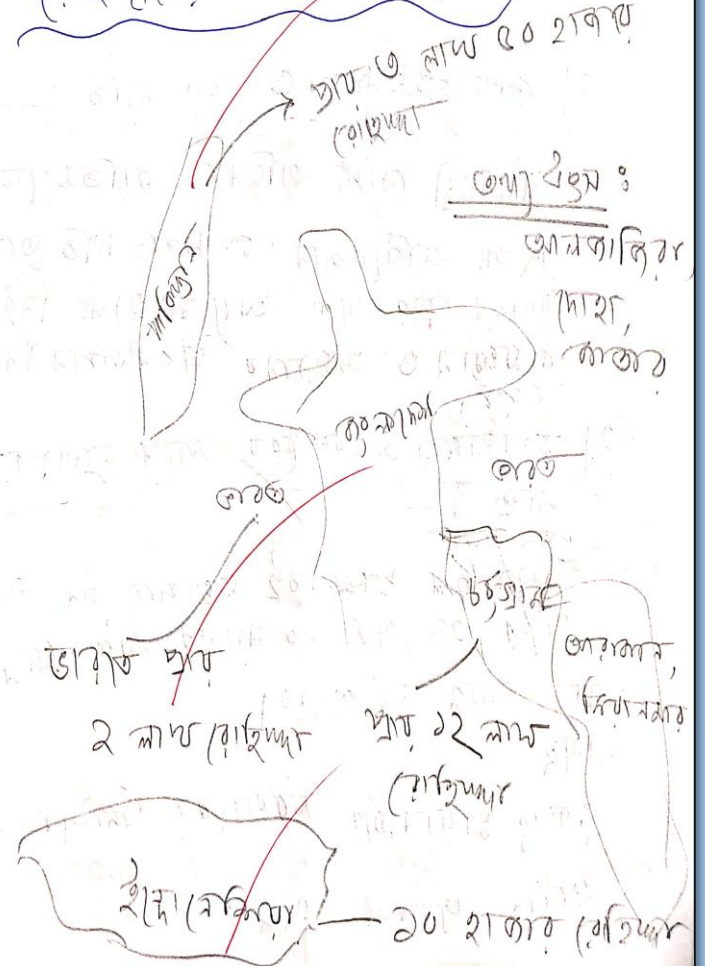 প্রায় ৩ লাখ ৫০ হাজার
রোহিঙ্গা
তথ্য উৎস :
আলজাজিরা,
দোহা,
কাতার
পাকিস্তান
বাংলাদেশ
ভারত
ভারত
চট্টগ্রাম
আরাকান,
মিয়ানমার
ভারতে প্রায়
২ লাখ রোহিঙ্গা
প্রায় ১২ লাখ
রোহিঙ্গা
ইন্দোনেশিয়া
১০ হাজার রোহিঙ্গা